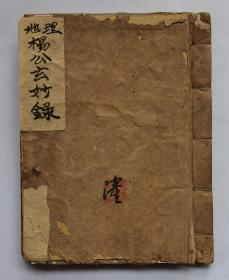 地理
楊公玄妙錄